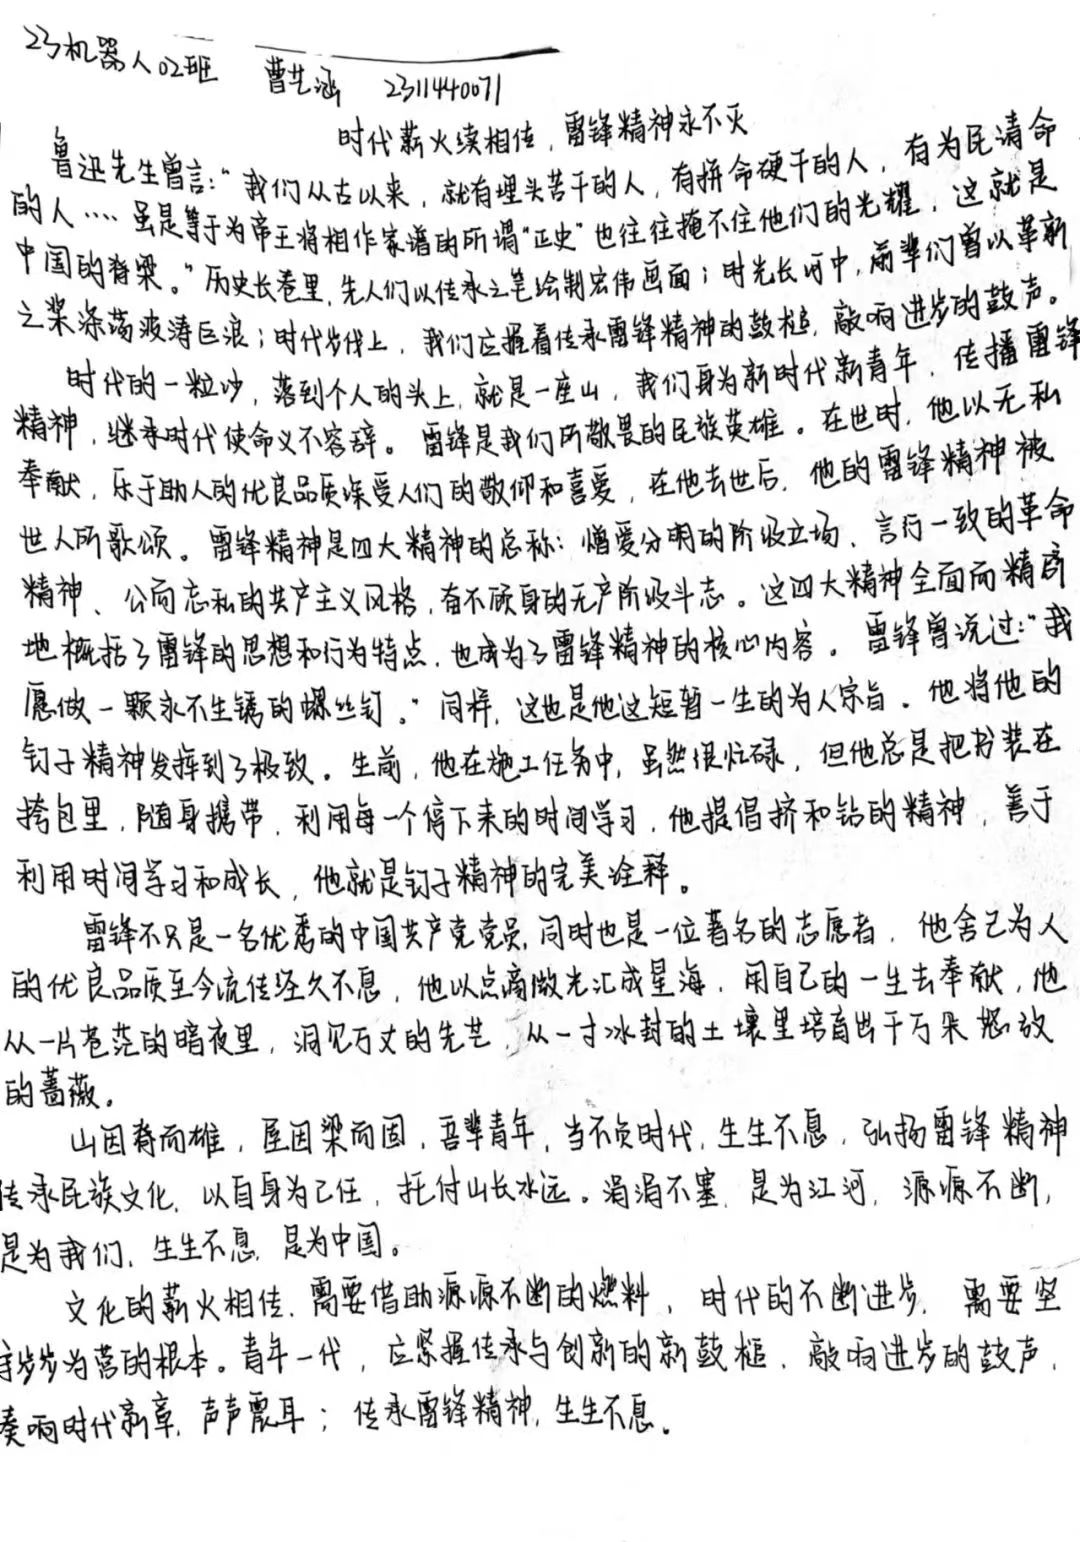 23机器人02班 曹艺涵 2311440071
时代薪火续相传，雷锋精神永不灭
鲁迅先生曾言：“我们从古以来，就有埋头苦干的人，有拼命硬干的人，有为民请命
的人……虽是等于为帝王将相作家谱的所谓“正史”也往往掩不住他们的光耀，这就是
中国的脊梁。”历史长卷里，先人们以传承之笔绘制宏伟画面；时光长河中，前辈们曾以革新
之桨涤荡波涛巨浪；时代步伐上，我们应握着传承雷锋精神的鼓槌，敲响进步的鼓声。
时代的一粒沙，落到个人的头上，就是一座山，我们身为新时代新青年，传播雷锋
精神，继承时代使命义不容辞。雷锋是我们所敬畏的民族英雄。在世时，他以无私
奉献，乐于助人的优良品质深受人们的敬仰和喜爱，在他去世后，他的雷锋精神被
世人所歌颂。雷锋精神是四大精神的总称：憎爱分明的阶级立场、言行一致的革命
精神、公而忘私的共产主义风格，奋不顾身的无产阶级斗志。这四大精神全面而精高
地概括了雷锋的思想和行为特点，也成为了雷锋精神的核心内容。雷锋曾说过：“我
愿做一颗永不生锈的螺丝钉。”同样，这也是他这短暂一生的为人宗旨。他将他的
钉子精神发挥到了极致。生前，他在施工任务中，虽然很忙碌，但他总是把书装在
挎包里，随身携带，利用每一个停下来的时间学习，他提倡挤和钻的精神，善于
利用时间学习和成长，他就是钉子精神的完美诠释。
雷锋不只是一名优秀的中国共产党党员，同时也是一位著名的志愿者，他舍己为人
的优良品质至今流传经久不息，他以点滴微光汇成星海，用自己的一生去奉献，他
从一片苍茫的暗夜里，洞见万丈的光芒，从一寸冰封的土壤里培育出千万朵怒放
的蔷薇。
山因脊而雄，屋因梁而固，吾辈青年，当不负时代，生生不息，弘扬雷锋精神
传承民族文化，以自身为己任，托付山长水远。涓涓不塞，是为江河，源源不断，
是为我们，生生不息，是为中国。
文化的薪火相传，需要借助源源不断的燃料，时代的不断进步，需要坚
守步步为营的根本。青年一代，应紧握传承与创新的新鼓槌，敲响进步的鼓声，
奏响时代新章，声声震耳；传承雷锋精神，生生不息。